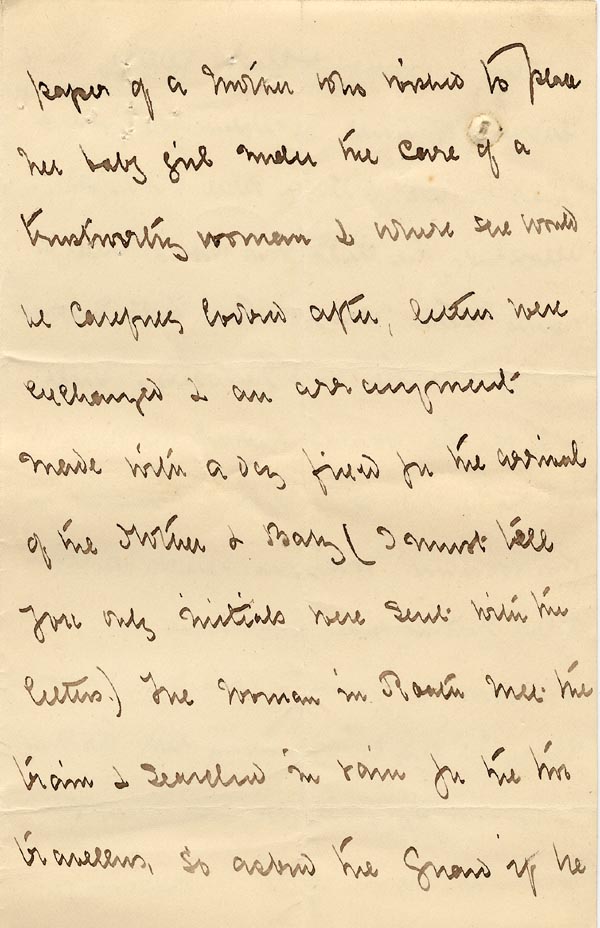 paper of a Mother who wished to place
her baby girl under the care of a
trustworthy woman & where she would
be carefully looked after, letters were
exchanged & an arrangment
made with a day fixed for the arrival
of the Mother & Baby ( I must tell
you only initials were sent with the
letters.) The woman in met the
train & searched in vain for the two
travellers, so asked the Guard if he